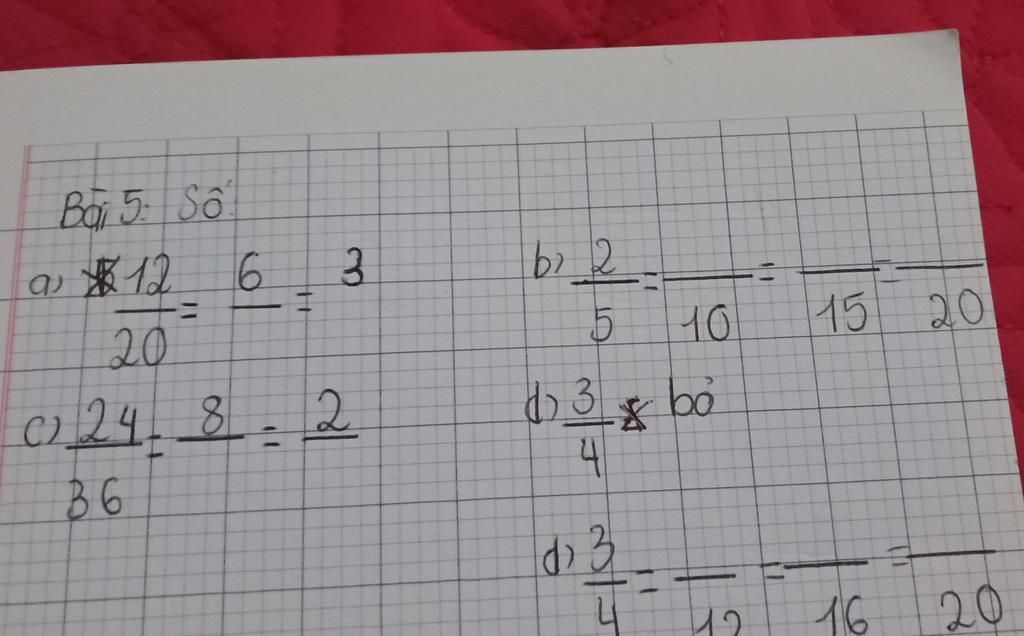 Bài 5: Số
a) 12/20 = 6/ = 3
b) 2/5 = /10 = /15 = /20
c) 24/36 = 8/ = 2/
d) 3/4 bỏ
d) 3/4 = /12 = /16 = /20